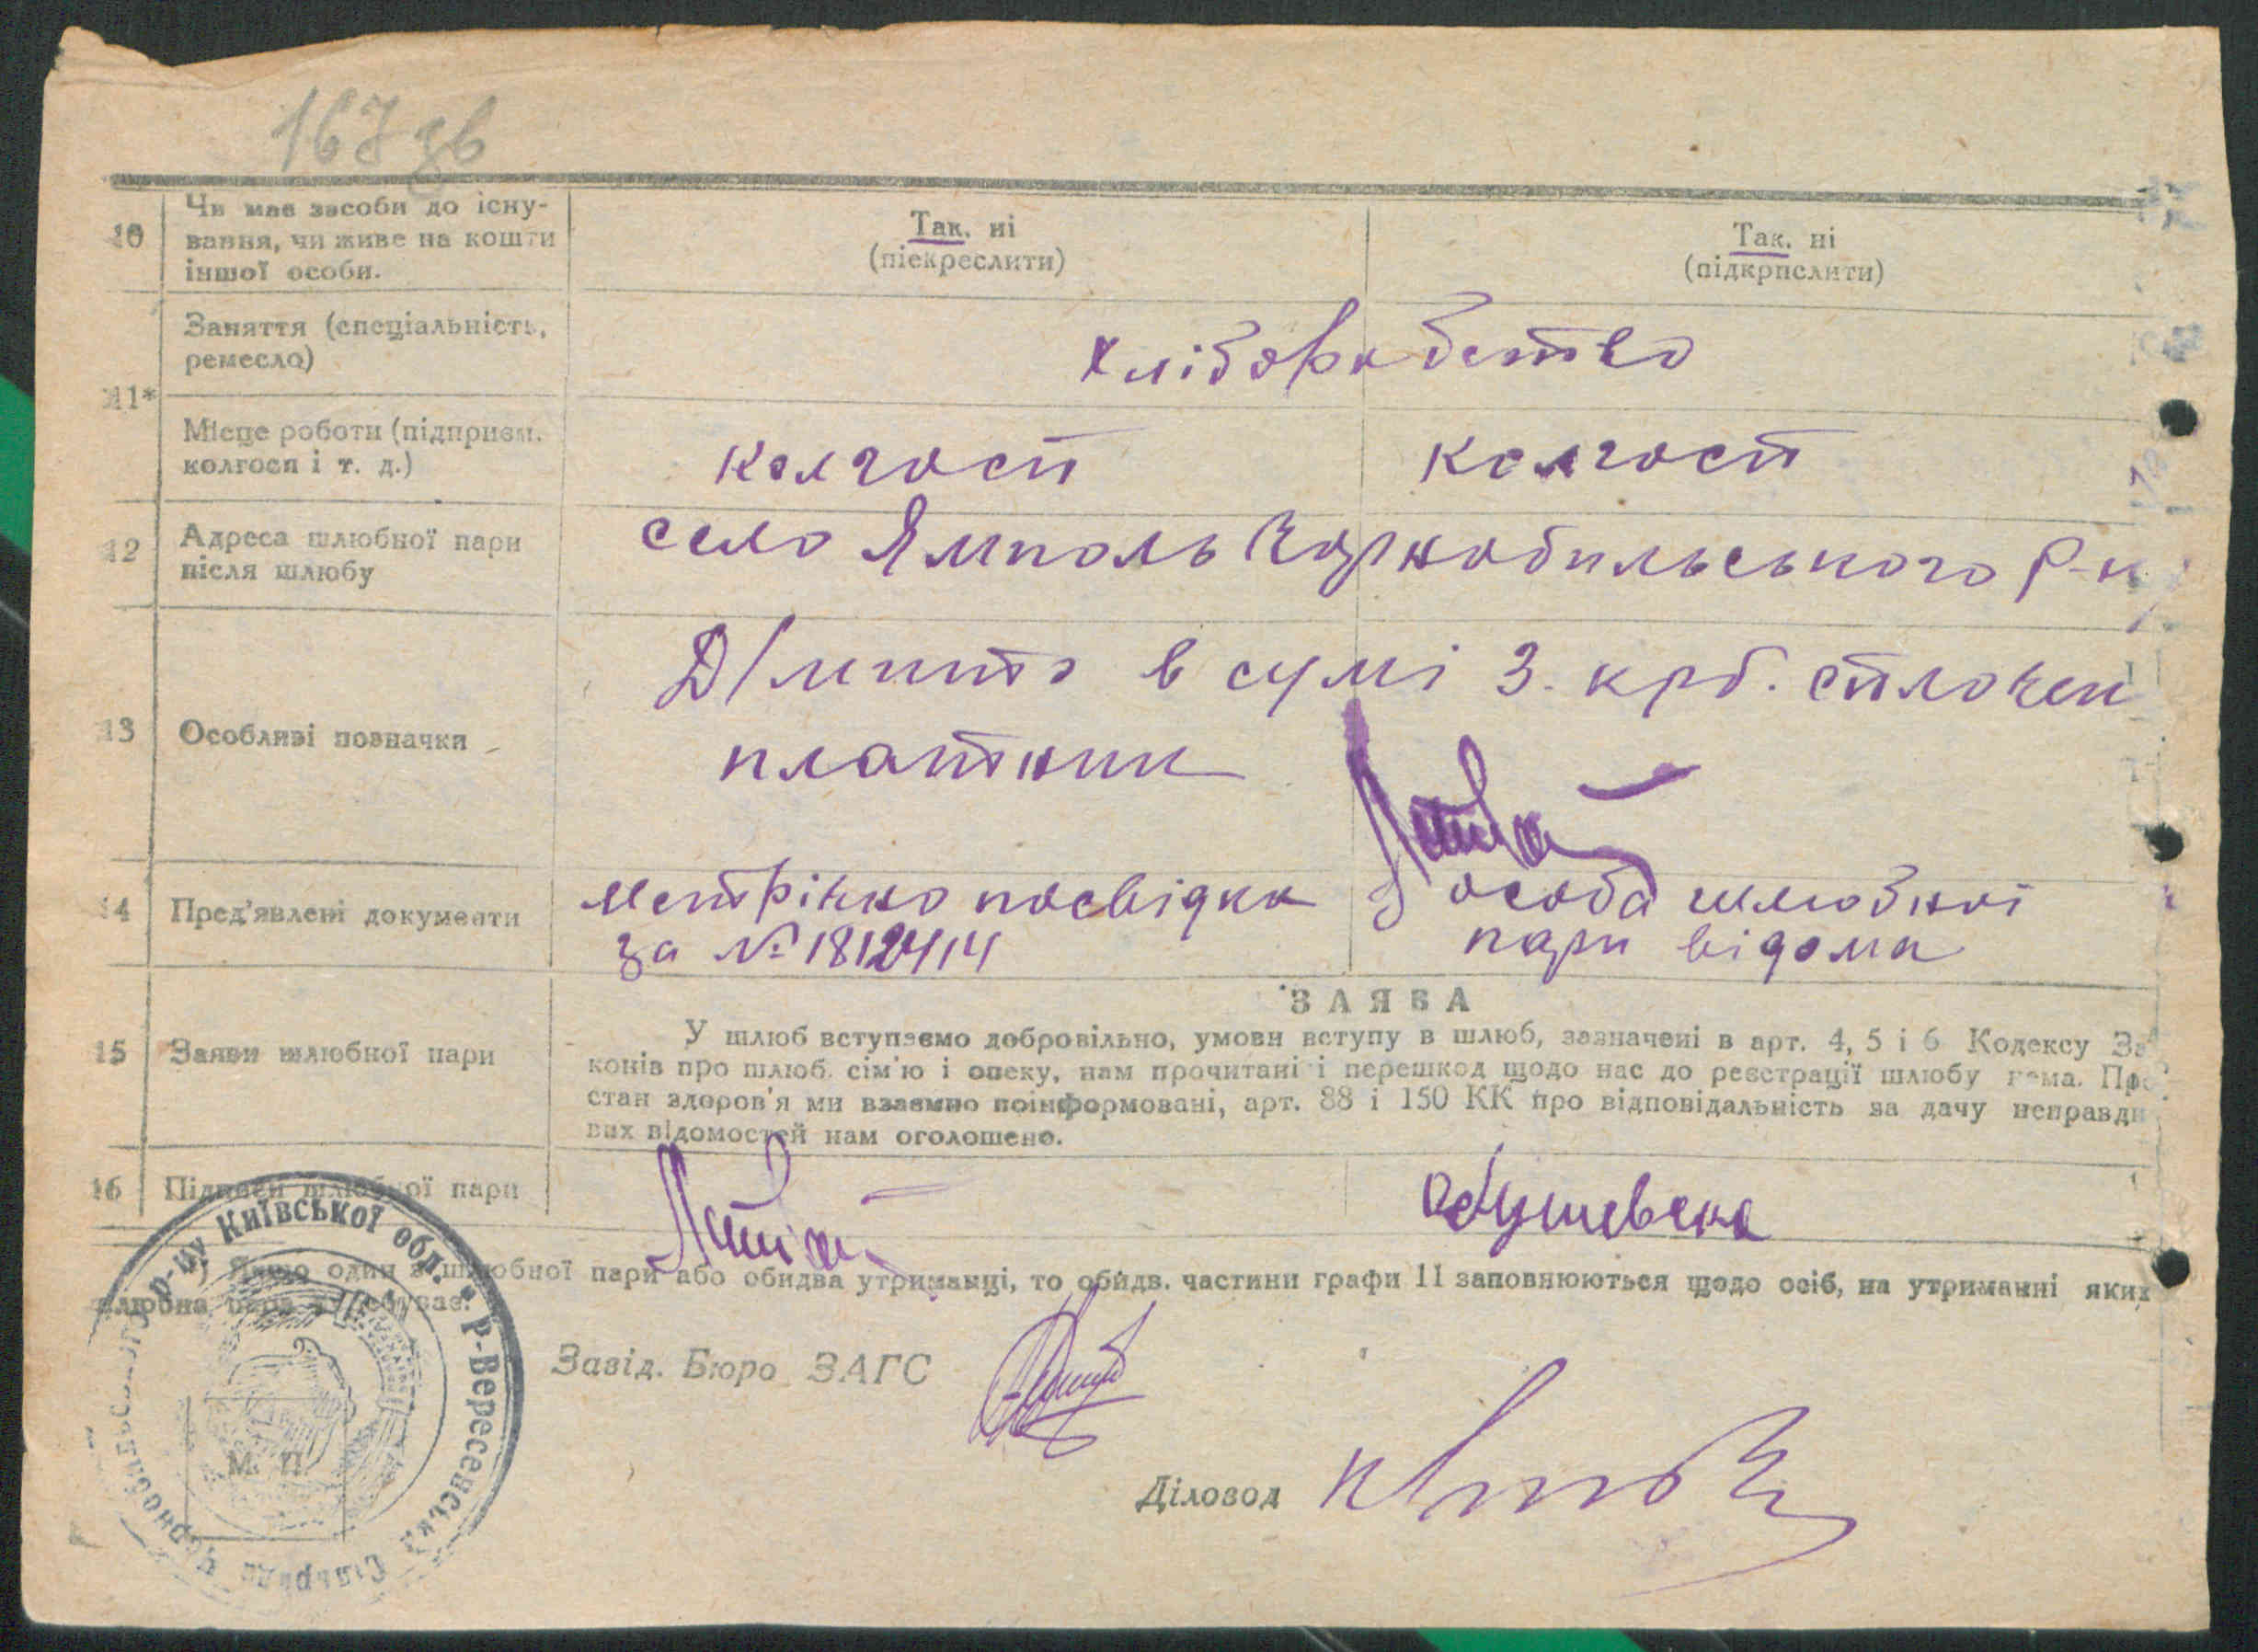 167 зв
10
Чи має засоби до існу-
вання, чи живе на кошти
іншої особи.
Так, ні
(піекреслити)
Так, ні
(підкрпслити)
11*
Заняття (спеціальність,
ремесло)
хліборобство
Місце роботи (підприєм.
колгосп і т. д.)
колгосп
колгосп
12
Адреса шлюбної пари
після шлюбу
село Ямполь Чорнобильського р-н
13
Особливі позначки
Д/мито в сумі 3. крб. сплочен
платник
14
Пред'явлені документи
метрічко посвідка
за № 1812414
особа шлюбної
пари відома
15
Заяви шлюбної пари
ЗАЯВА
У шлюб вступаємо добровільно, умови вступу в шлюб, зазначені в арт. 4, 5 і 6 Кодексу За
конів про шлюб, сім'ю і опеку, нам прочитані і перешкод щодо нас до реєстрації шлюбу нема. Про
стан здоров'я ми взаємно поінформовані, арт. 88 і 150 КК про відповідальність за дачу неправди
вих відомостей нам оголошено.
16
Підписи шлюбної пари
) Якщо один з шлюбної пари або обидва утриманці, то обидв. частини графи 11 заповнюються щодо осіб, на утриманні яких
шлюбна пара
Завід. Бюро ЗАГС
Діловод
М. П.
Р-Вересенська Сільрада Чорнобильського р-ну Київської обл.